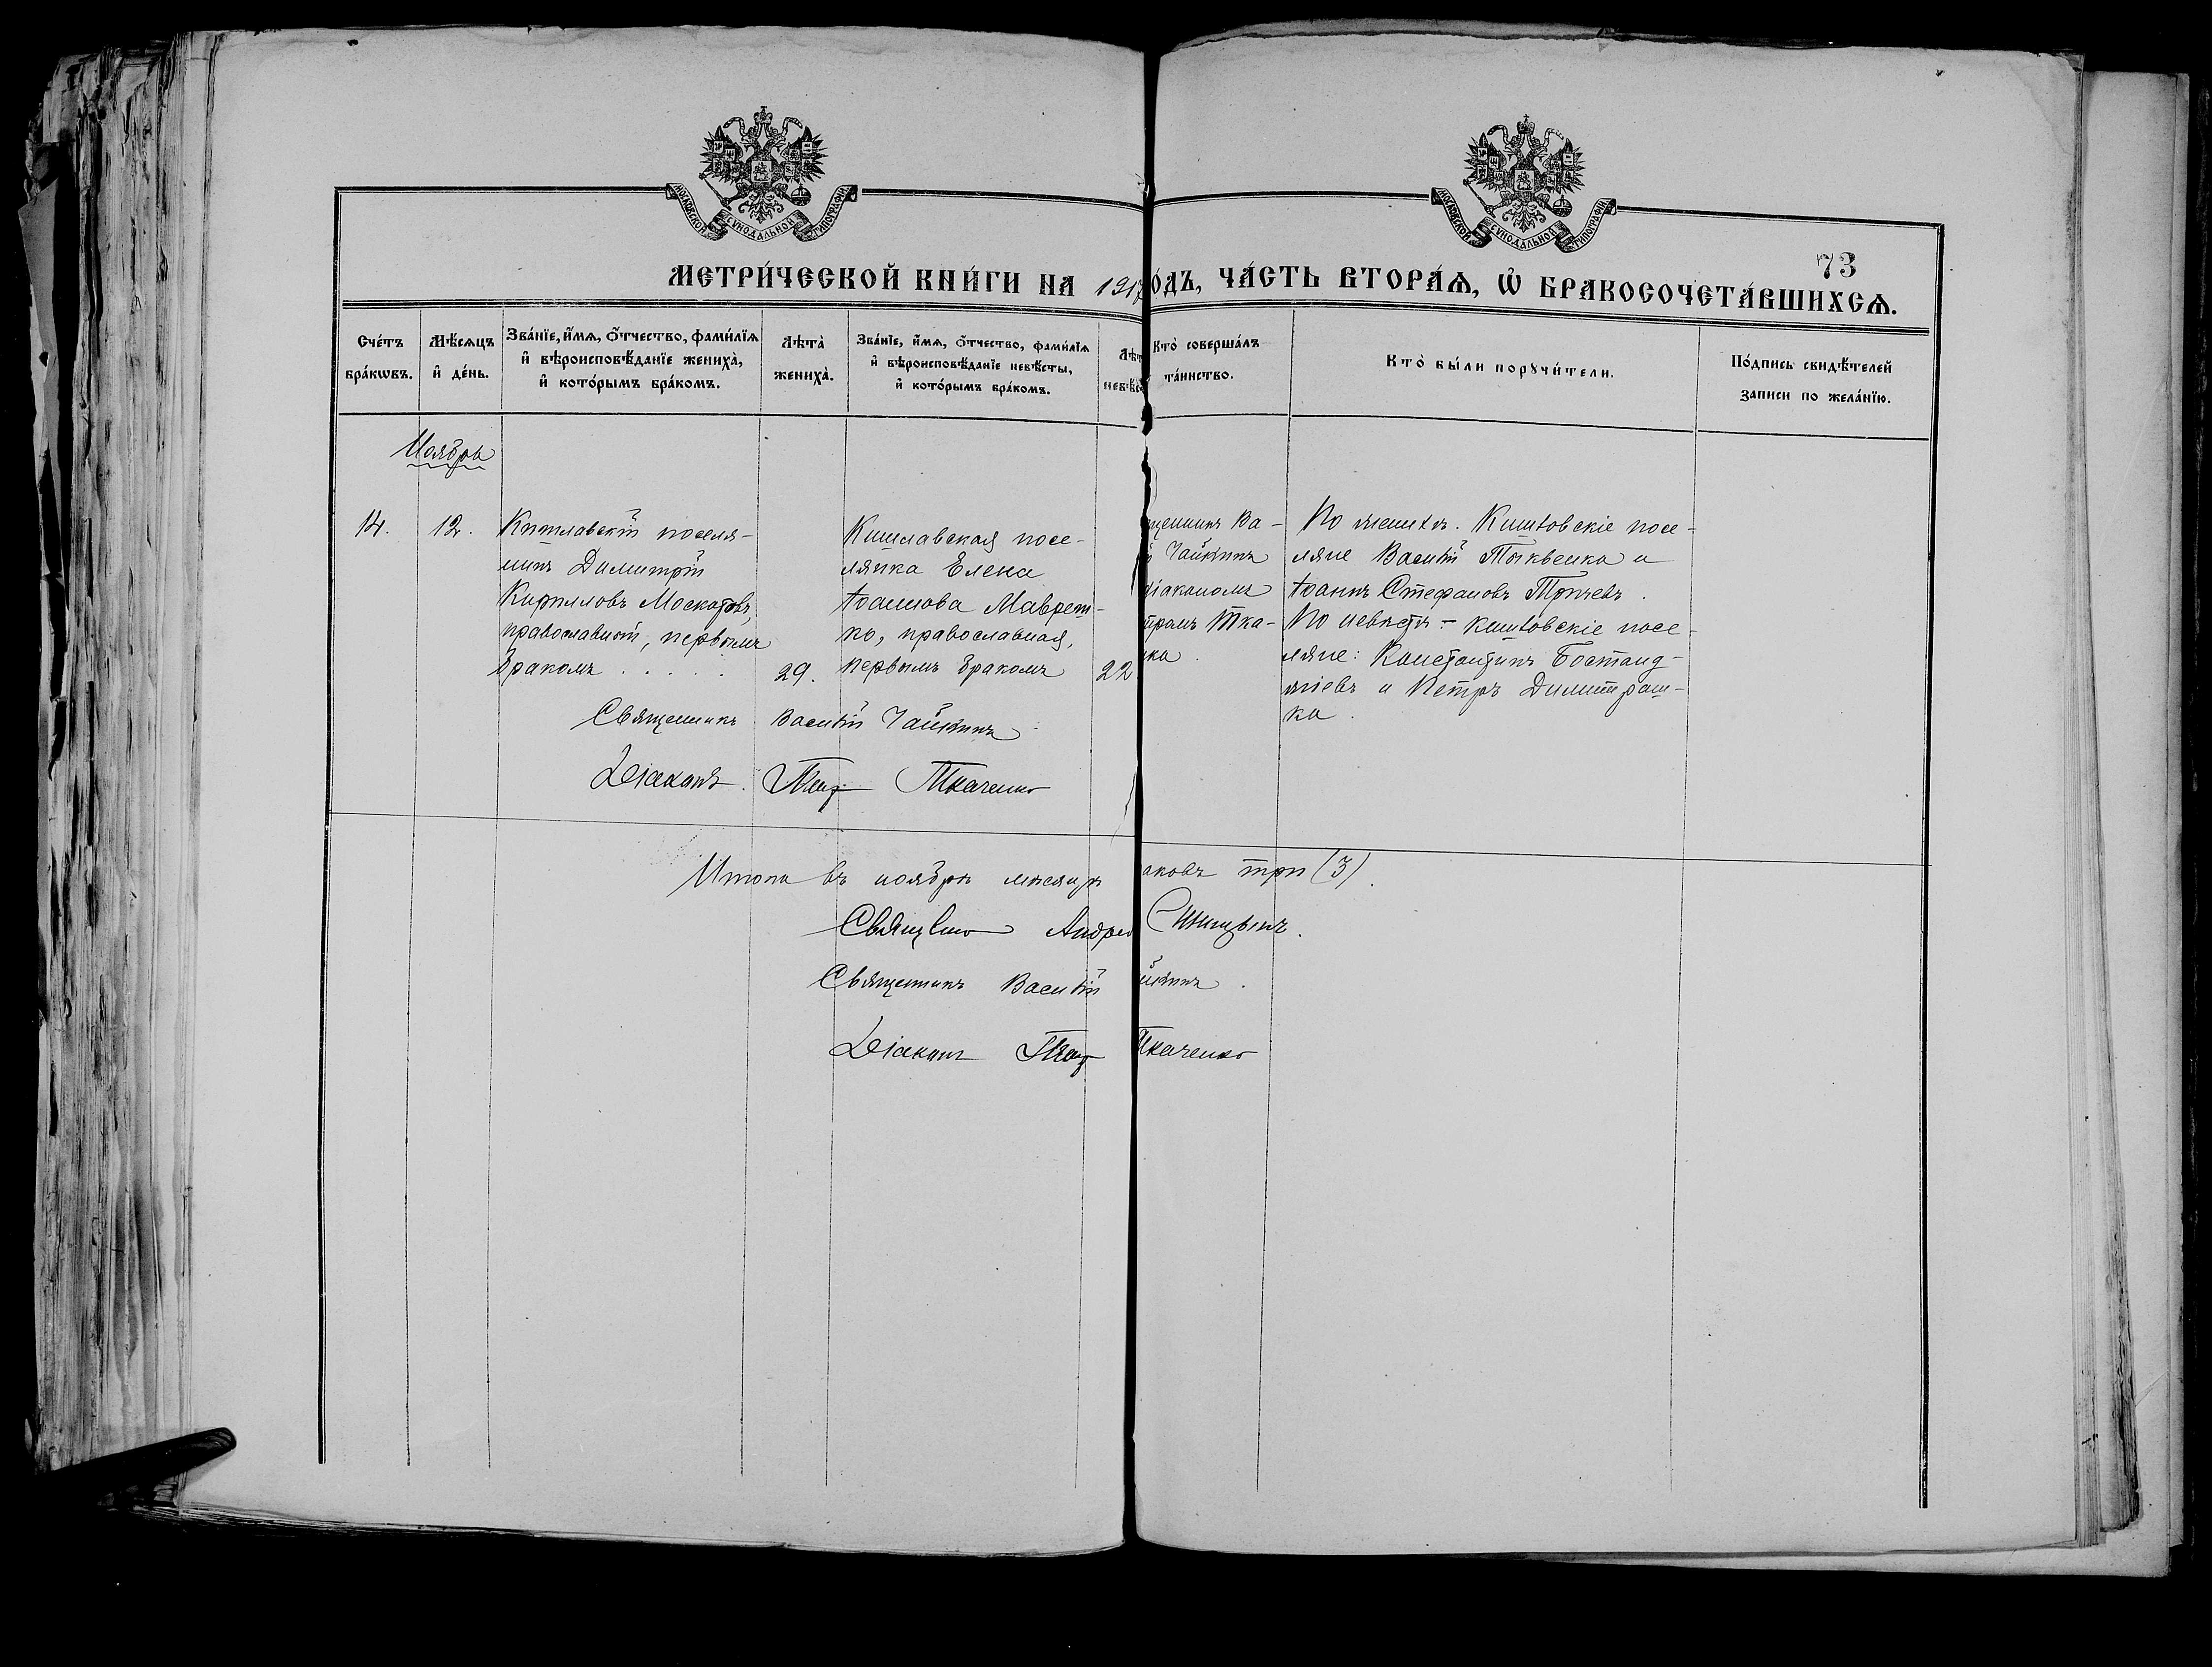 МОСКОВСКОЙ СѴНОДАЛЬНОЙ ТИПОГРАФІИ
МОСКОВСКОЙ СѴНОДАЛЬНОЙ ТИПОГРАФІИ
73
МЕТРИ́ЧЕСКОЙ КНИ́ГИ НА 1917 ОДЪ, ЧА́СТЬ ВТОРА́Ѧ, Ѽ БРАКОСОЧЕТА́ВШИХСѦ.
Сче́тъ бра́кѡвъ.
Мѣ́сѧцъ и҆ де́нь.
Зва́нїе, и҆́мѧ, ѻ҆́тчество, фами́лїѧ
и҆ вѣроисповѣ́данїе жениха̀,
и҆ кото́рымъ бра́комъ.
Лѣта̀ жениха̀.
Зва́нїе, и҆́мѧ, ѻ҆́тчество, фами́лїѧ
и҆ вѣроисповѣ́данїе невѣ́сты,
и҆ кото́рымъ бра́комъ.
Лѣт
невѣ́с
Кто̀ соверша́лъ
та́инство.
Кто̀ бы́ли порꙋчи́тели.
По́дпись свидѣ́телей
записи по жела́нїю.
Ноябрь
14.
12.
Кишлавскій поселя-
нинъ Димитрій
Кирилловъ
православный, первымъ
бракомъ . . . . .
29.
Кишлавская посе-
лянка Елена
Іоаннова Маврет-
ко, православная,
первымъ бракомъ
22
щенникъ Ва-
й Чайкинъ
діакономъ
тромъ Тка-
нко.
По женихѣ. Кишлавскіе посе-
ляне Василій Тыквенко и
Іоаннъ Стефановъ
По невѣстѣ - Кишлавскіе посе-
ляне: Константинъ Бостанд-
жіевъ и Петръ Димитраш-
ко.
Священникъ Василій Чайкинъ.
Діаконъ. Петр Ткаченко
Итого въ ноябрѣ мѣсяцѣ аковъ три (3).
Священник Андре
Священникъ Василій йкинъ.
Діаконъ Петр Ткаченко